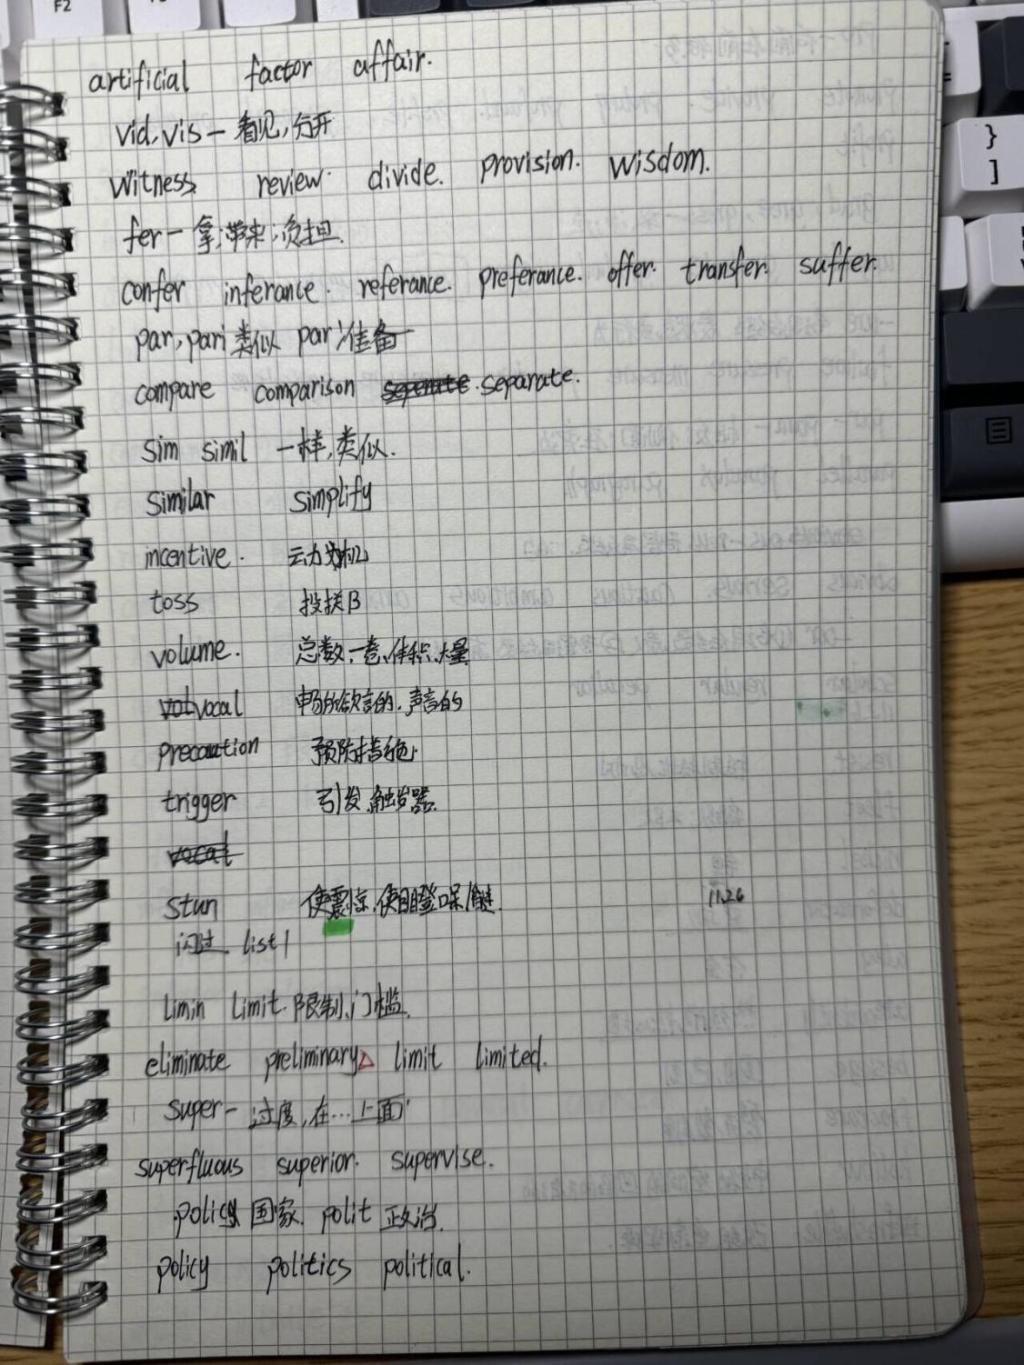 artificial factor affair.
vid, vis — 看见, 分开
witness review. divide. provision. wisdom.
fer — 拿, 带来, 负担.
confer inferance. referance. preferance. offer. transfer. suffer.
par, pari 类似 par 准备
compare comparison separate.
sim simil 一样, 类似.
similar simplify
incentive. 动机
toss 投掷
volume. 总数, 体积, 大量
vocal 畅所欲言的, 声音的
precaution 预防措施
trigger 引发, 触发器.
stun 使震惊, 使目瞪口呆 11.26
闪过 list 1
limin limit. 限制, 门槛.
eliminate preliminary limit limited.
super- 过度, 在…上面
superfluous superior. supervise.
polic 国家. polit 政治.
policy politics political.